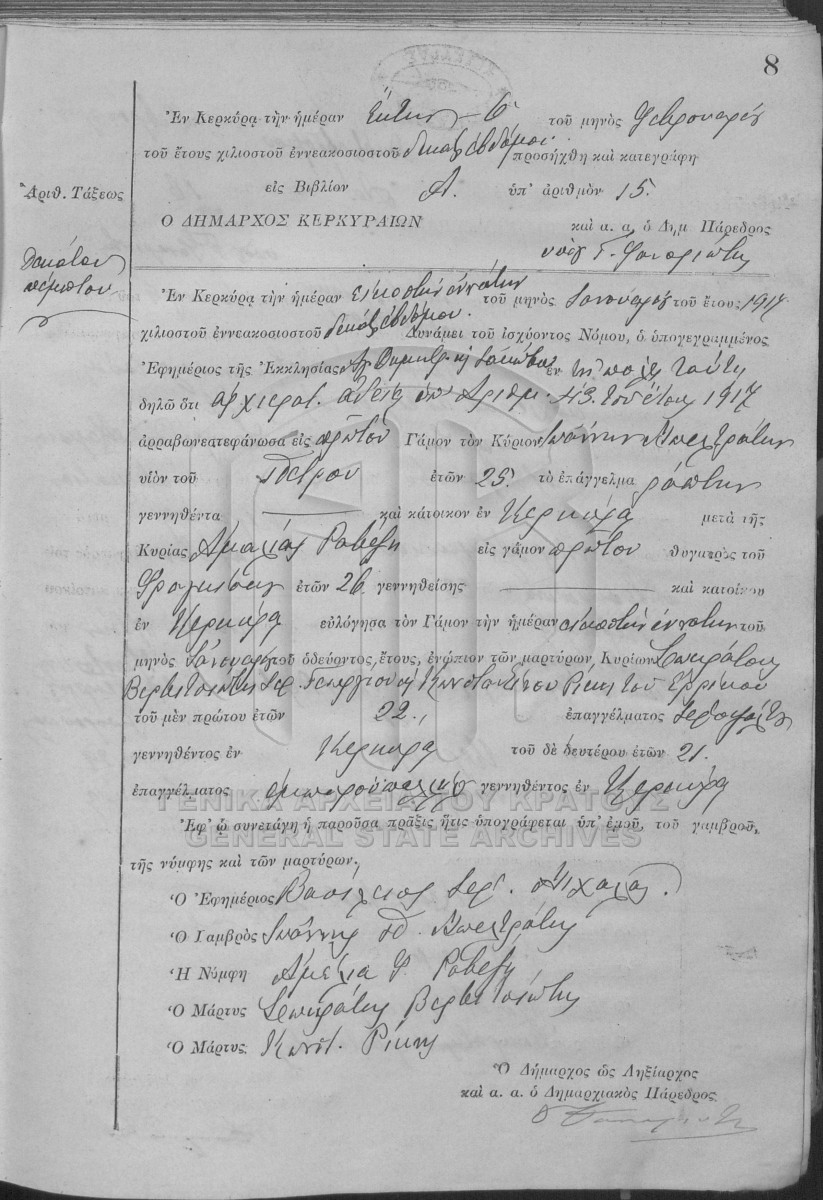 8
Ἐν Κερκύρᾳ τὴν ἡμέραν Ἕκτην 6 τοῦ μηνὸς Φεβρουαρίου
τοῦ ἔτους χιλιοστοῦ ἐννεακοσιοστοῦ δεκάτου ἑβδόμου προσήχθη καὶ κατεγράφη
εἰς Βιβλίον Α. ὑπ' ἀριθμὸν 15.
Ἀριθ. Τάξεως
Ο ΔΗΜΑΡΧΟΣ ΚΕΡΚΥΡΑΙΩΝ
καὶ α. α. ὁ Δημ Πάρεδρος
Δέκατον
πέμπτον
Ἐν Κερκύρᾳ τὴν ἡμέραν εἰκοστὴν ἐννάτην τοῦ μηνὸς Ιανουαρίου τοῦ ἔτους 1917
χιλιοστοῦ ἐννεακοσιοστοῦ δεκάτου ἑβδόμου. Δυνάμει τοῦ ἰσχύοντος Νόμου, ὁ ὑπογεγραμμένος
Ἐφημέριος τῆς Ἐκκλησίας ἐν τῇ πόλει ταύτῃ
δηλῶ ὅτι ἀρχιερατ. ἀδείᾳ ὑπ' Αριθμ. 43 τοῦ ἔτους 1917
ἀρραβωνεστεφάνωσα εἰς πρῶτον Γάμον τὸν Κύριον Ιωάννην Μπελτράτην
υἱὸν τοῦ Πέτρου ἐτῶν 25. τὸ ἐπάγγελμα ράπτην
γεννηθέντα καὶ κάτοικον ἐν Κερκύρᾳ μετὰ τῆς
Κυρίας Ἀμαλίας Ροβέζη εἰς γάμον πρῶτον θυγατρὸς τοῦ
Φραγκίσκου ἐτῶν 26 γεννηθείσης καὶ κατοίκου
ἐν Κερκύρᾳ εὐλόγησα τὸν Γάμον τὴν ἡμέραν εἰκοστὴν ἐννάτην τοῦ
μηνὸς Ιανουαρίου τοῦ ὁδεύοντος, ἔτους, ἐνώπιον τῶν μαρτύρων, Κυρίων Σωκράτους
Βερβιτσιώτη Γεωργίου καὶ Κωνσταντίνου Ρίκη τοῦ Ερρίκου
τοῦ μὲν πρώτου ἐτῶν 22., ἐπαγγέλματος
γεννηθέντος ἐν Κερκύρᾳ τοῦ δὲ δευτέρου ἐτῶν 21.
ἐπαγγέλματος ἐμποροϋπαλλήλου γεννηθέντος ἐν Κερκύρᾳ
ΓΕΝΙΚΑ ΑΡΧΕΙΑ ΤΟΥ ΚΡΑΤΟΥΣ
Ἐφ' ᾧ συνετάγη ἡ παροῦσα πρᾶξις ἥτις ὑπογράφεται ὑπ' ἐμοῦ, τοῦ γαμβροῦ,
GENERAL STATE ARCHIVES
τῆς νύμφης καὶ τῶν μαρτύρων.
Ὁ Ἐφημέριος Βασίλειος Ιερ. Μιχαλᾶς
Ὁ Γαμβρὸς Ιωάννης Π. Μπελτράτης
Ἡ Νύμφη Ἀμελία Φ Ροβέζη
Ὁ Μάρτυς Σωκράτης Βερβιτσιώτης
Ὁ Μάρτυς Κωνστ. Ρίκης
Ὁ Δήμαρχος ὡς Ληξίαρχος
καὶ α. α. ὁ Δημαρχιακὸς Πάρεδρος